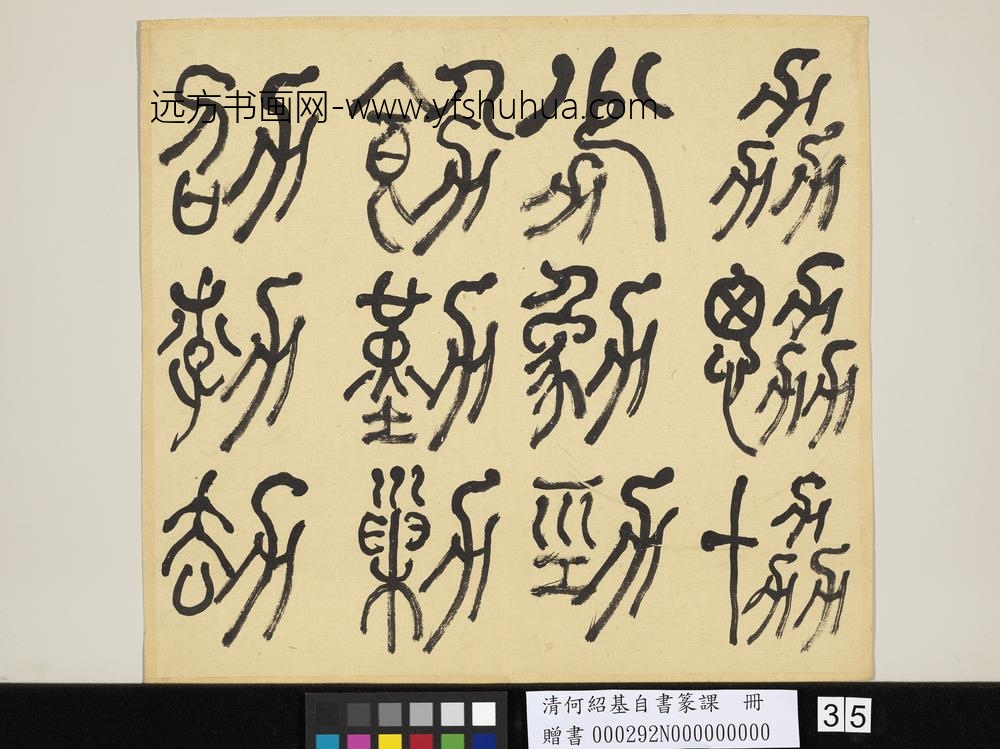 远方书画网-www.yfshuhua.com
劦勰協
勞勨勁
飭勤勦
劭勃劫
清何紹基自書篆課 冊
贈書 000292N000000000
35